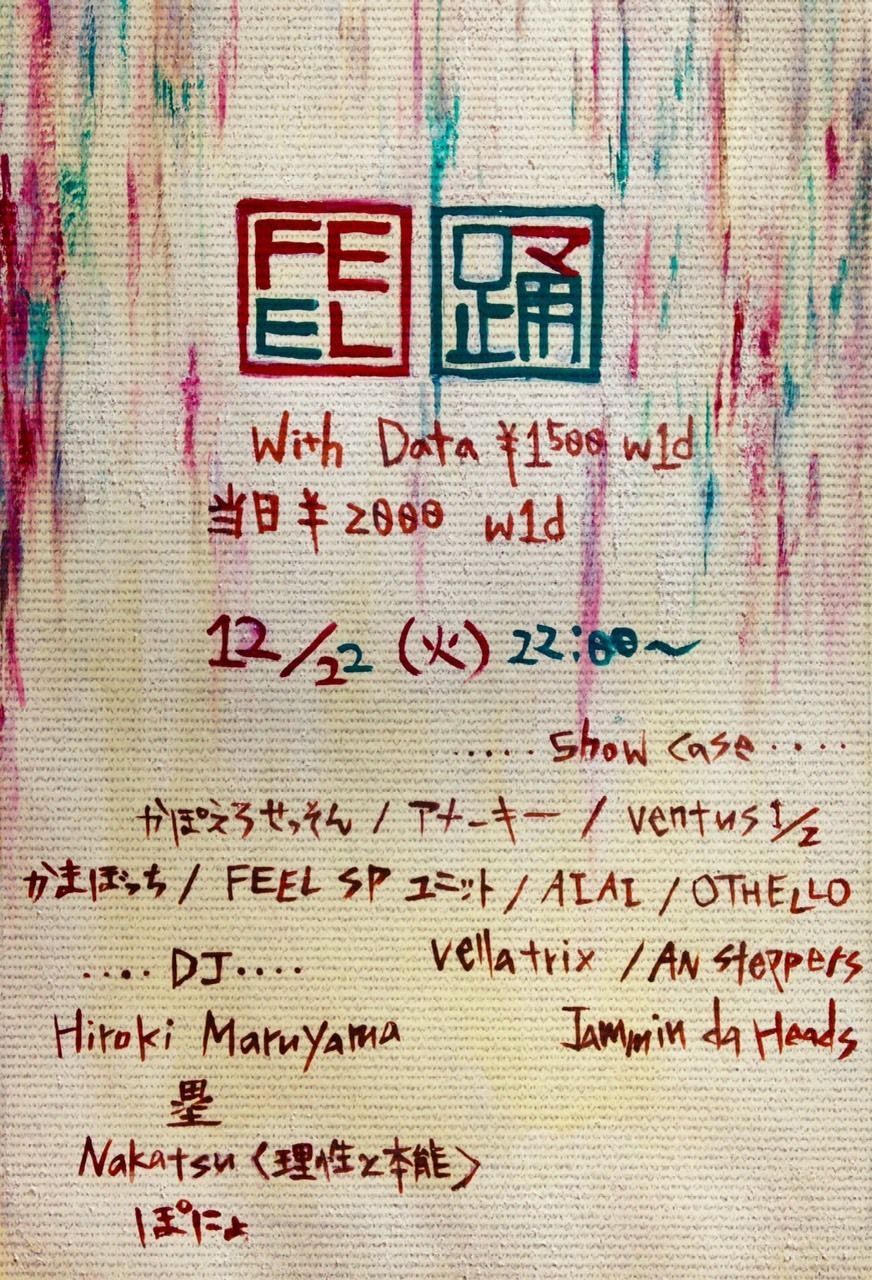 FEEL 踊
With Data ¥1500 w1d
当日 ¥2000 w1d
12/22 (火) 22:00〜
..... Show case ....
かぽえろせっそん / アナーキー / ventus 1/2
かまぼっち / FEEL SP ユニット / AIAI / OTHELLO
vellatrix / AN steppers
Jammin da Heads
.... DJ ....
Hiroki Maruyama
塁
Nakatsu (理性と本能)
ぽにょ